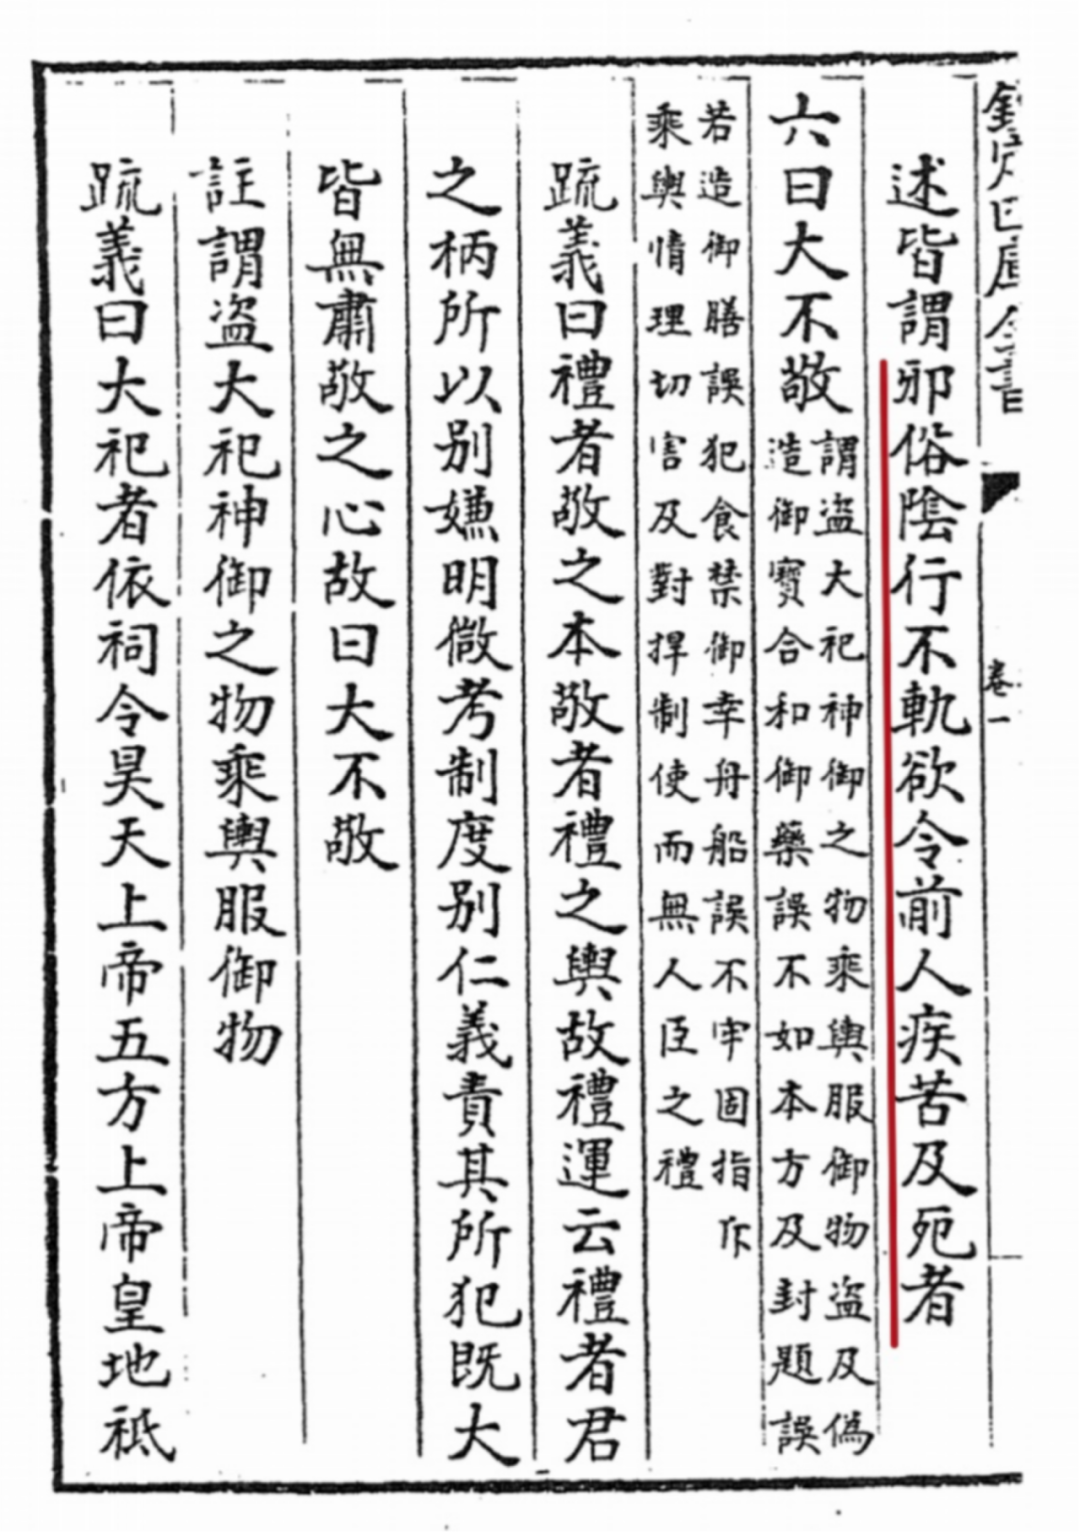 欽定四庫全書
卷一
述皆謂邪俗陰行不軌欲令前人疾苦及死者
六曰大不敬
謂盗大祀神御之物乘輿服御物盗及偽
造御寳合和御藥誤不如本方及封題誤
若造御膳誤犯食禁御幸舟船誤不牢固指斥
乘輿情理切害及對捍制使而無人臣之禮
疏義曰禮者敬之本敬者禮之輿故禮運云禮者君
之柄所以别嫌明微考制度别仁義責其所犯既大
皆無肅敬之心故曰大不敬
註謂盗大祀神御之物乘輿服御物
疏義曰大祀者依祠令昊天上帝五方上帝皇地祗